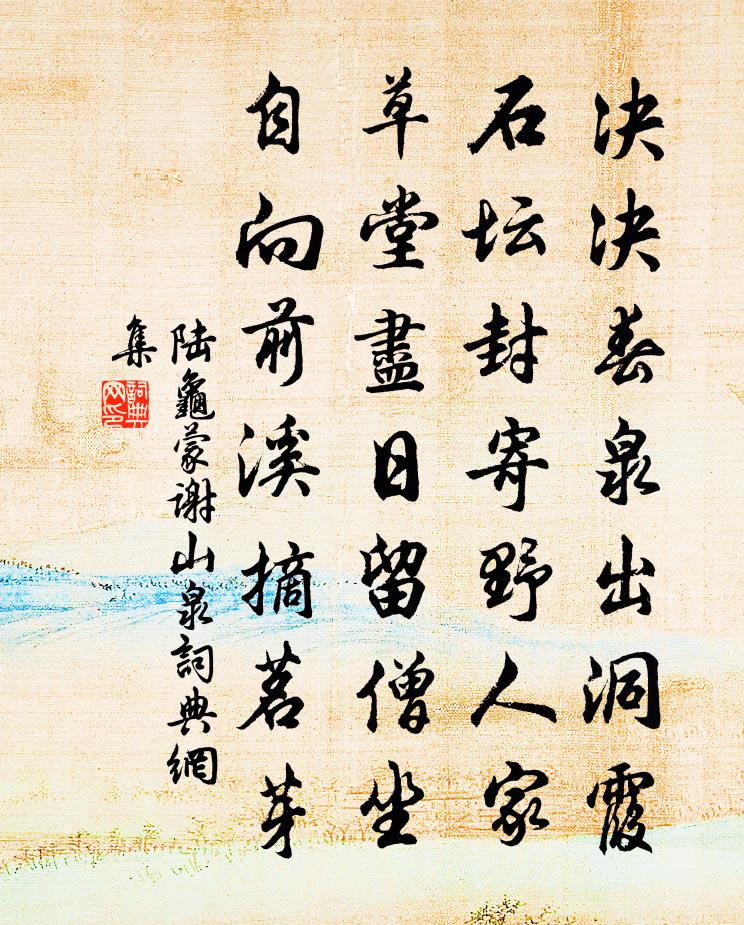 决决春泉出洞霞
石坛封寄野人家
草堂盡日留僧坐
自向前溪摘茗芽
陆龜蒙谢山泉詞典網
集
詞典
网印